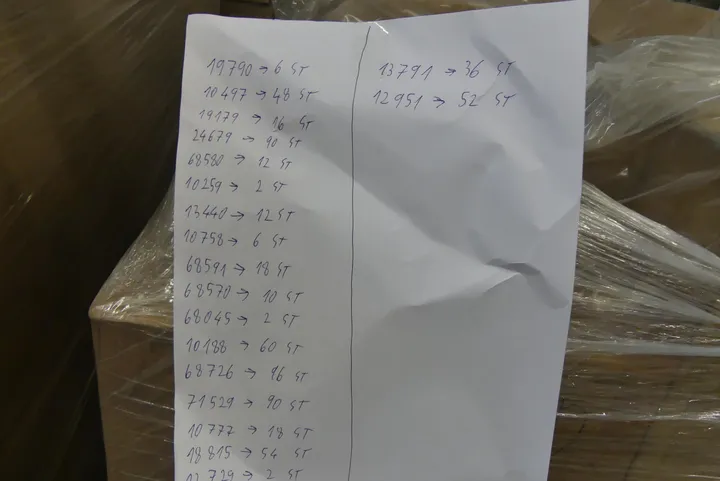 19790 → 6 ST
10497 → 48 ST
19179 → 16 ST
24679 → 90 ST
68580 → 12 ST
10259 → 2 ST
13440 → 12 ST
10758 → 6 ST
68591 → 18 ST
68570 → 10 ST
68045 → 2 ST
10188 → 60 ST
68726 → 96 ST
71529 → 90 ST
10777 → 18 ST
18815 → 54 ST
729 → 2 ST
13791 → 36 ST
12951 → 52 ST